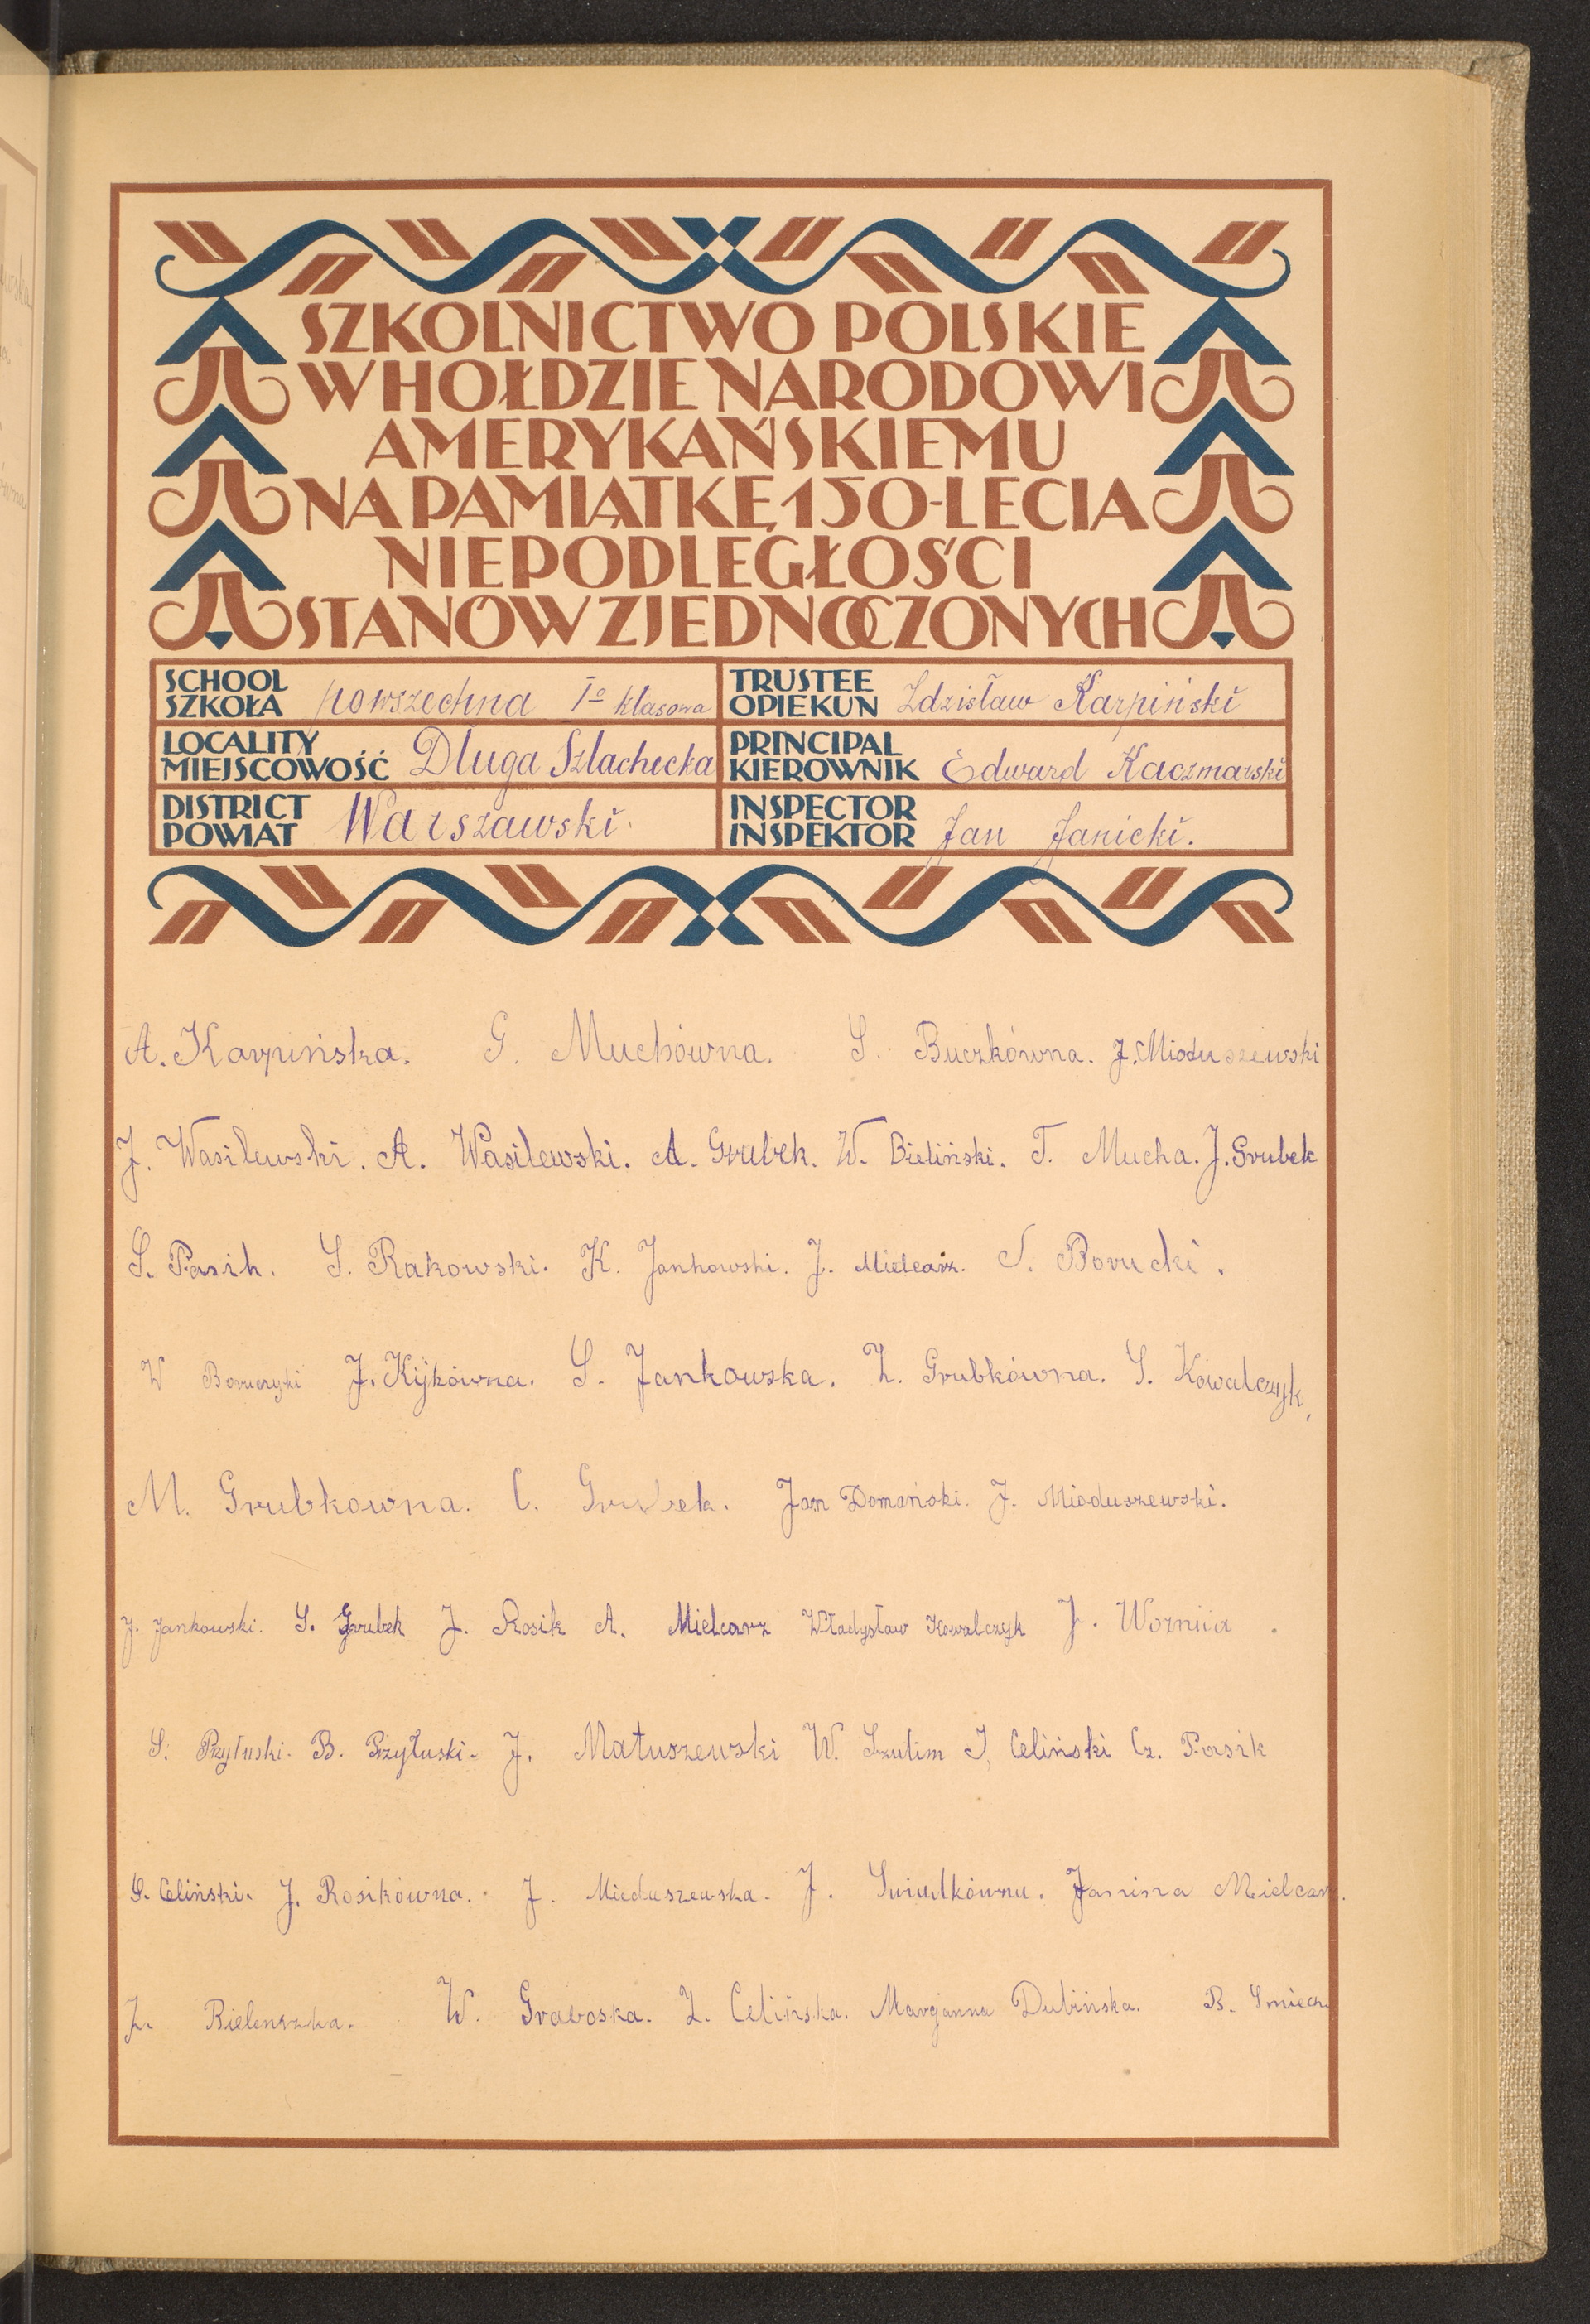 SZKOLNICTWO POLSKIE
W HOŁDZIE NARODOWI
AMERYKAŃSKIEMU
NA PAMIĄTKĘ 150-LECIA
NIEPODLEGŁOŚCI
STANÓW ZJEDNOCZONYCH
SCHOOL
SZKOŁA powszechna 1º klasowa
TRUSTEE
OPIEKUN Zdzisław Karpiński
LOCALITY
MIEJSCOWOŚĆ Długa Szlachecka
PRINCIPAL
KIEROWNIK Edward Kaczmarski
DISTRICT
POWIAT Warszawski.
INSPECTOR
INSPEKTOR Jan Janicki.
A. Karpińska. G. Muchówna. S. Buczkówna. J. Mioduszewski
J. Wasilewski. A. Wasilewski. A. Grubek. W. Bieliński. T. Mucha. J. Grubek
S. Pasik. S. Rakowski. K. Jankowski. J. Mielcarz. S. Borucki.
W Boruczyki J. Kijkówna. S. Jankowska. Z. Grubkówna. S. Kowalczyk,
M. Grubkowna. C. Grubek. Jan Domański. J. Mioduszewski.
J. Jankowski. S. Grubek J. Rosik A. Mielcarz Władysław Kowalczyk J. Woznica.
S. Przyłuski. B. Przyłuski. J. Matuszewski W. Szulim J. Celiński Cz. Pasik
S. Celiński. J. Rosikówna. J. Mieduszewska. J. Janina Mielcarz.
Z. W. Graboska. Z. Celińska. Marjanna Dubińska. B.